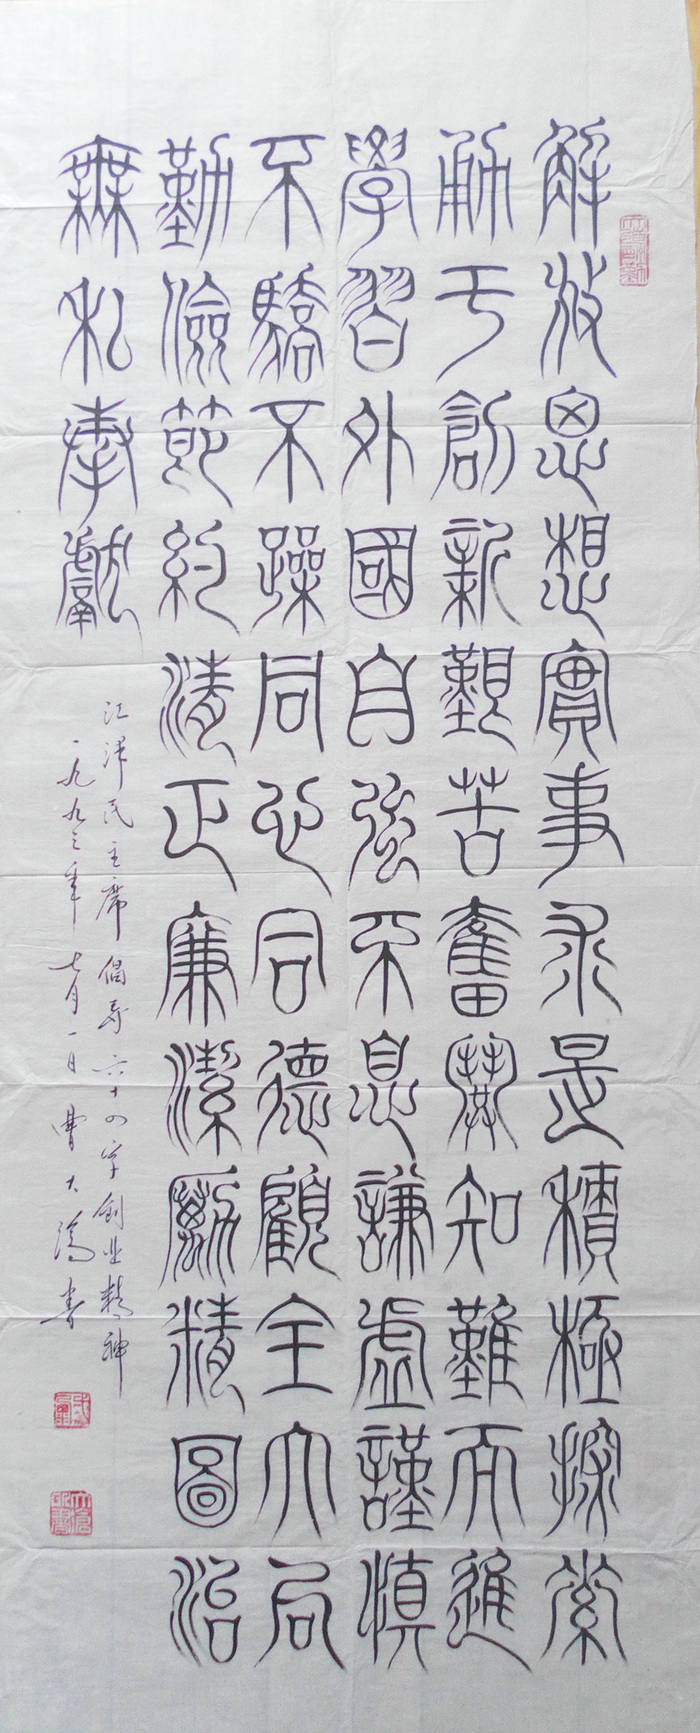 解放思想實事求是積極探索
勇于創新艱苦奮鬥知難而進
學習外國自強不息謙虛謹慎
不驕不躁同心同德顧全大局
勤儉節約清正廉潔勵精圖治
無私奉獻
江泽民主席倡导六十四字创业精神
一九九三年七月一日曹大沧书